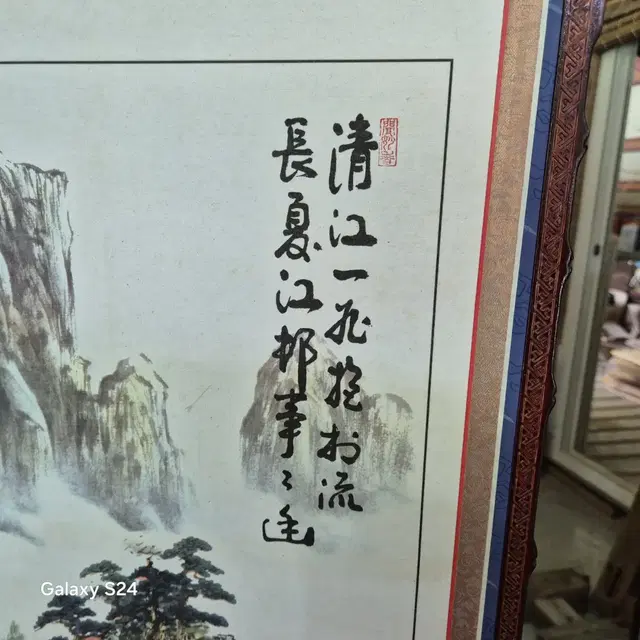 清江一抱村流
長夏江邨事〻幽
Galaxy S24